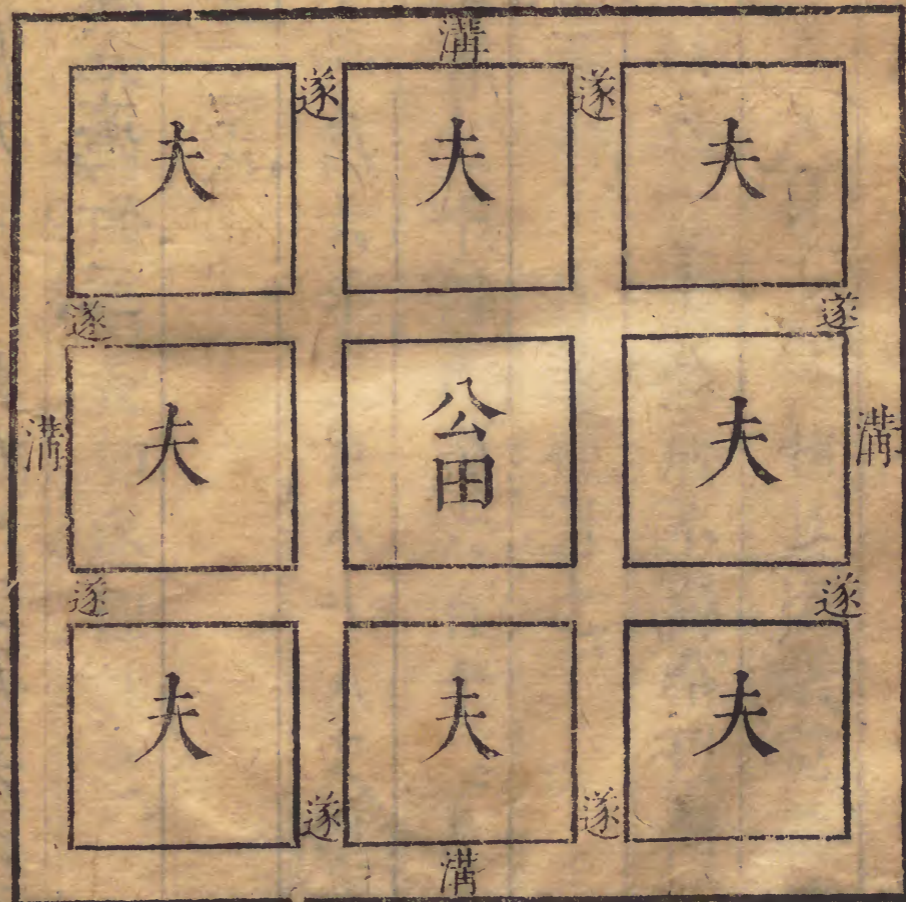 溝
遂 遂
夫 夫 夫
遂 遂
溝 夫 公田 夫 溝
遂 遂
夫 夫 夫
遂 遂
溝